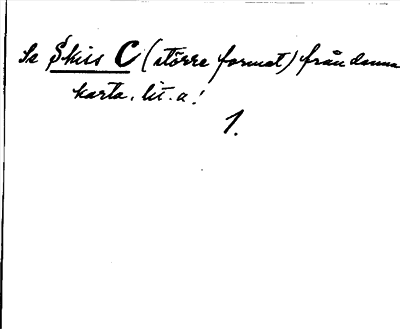 Se Skiss C (större format) från denna
karta, lit. a!
1.